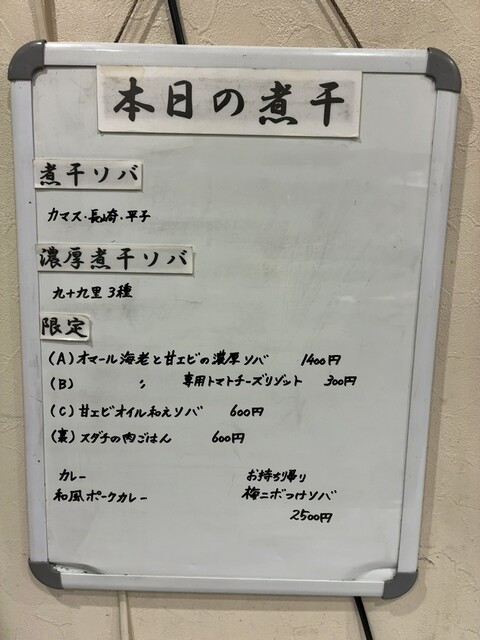 本日の煮干
煮干ソバ
カマス・長崎・平子
濃厚煮干ソバ
九十九里 3種
限定
(A) オマール海老と甘エビの濃厚ソバ 1400円
(B) 〃 専用トマトチーズリゾット 300円
(C) 甘エビオイル和えソバ 600円
(裏) スダチの肉ごはん 600円
カレー
和風ポークカレー
お持ち帰り
梅ニボつけソバ
2500円